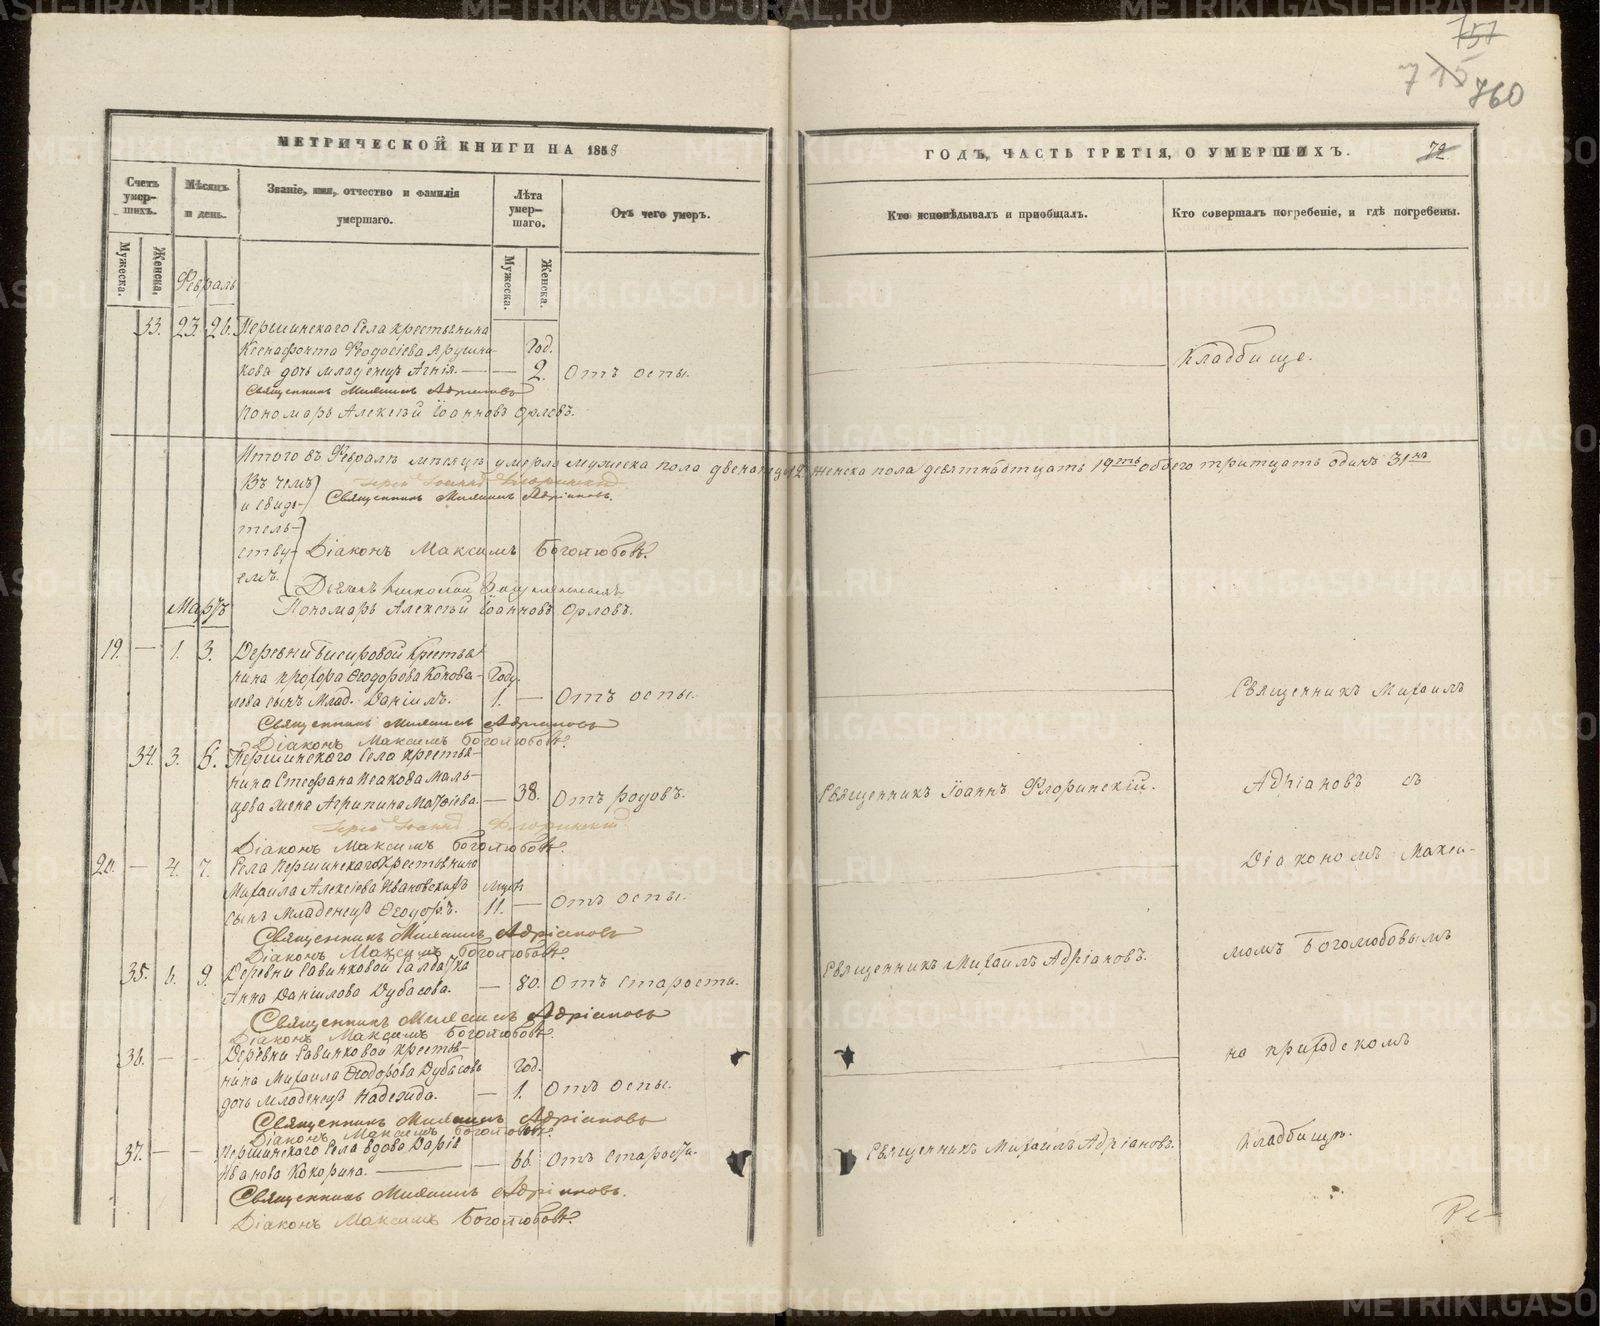 757
715
760
МЕТРИЧЕСКОЙ КНИГИ НА 1858
ГОДЪ, ЧАСТЬ ТРЕТІЯ, О УМЕРШИХЪ.
72
Счетъ умер-шихъ.
Мѣсяцъ и день.
Званіе, имя, отчество и фамилія умершаго.
Лѣта умер-шаго.
Отъ чего умеръ.
Кто исповѣдывалъ и пріобщалъ.
Кто совершалъ погребеніе, и гдѣ погребены.
Мужеска.
Женска.
Мужеска.
Женска.
Февраль
33. 23. 26. Першинскаго Села крестьянина
Ксенофонта Ѳеодосіева
Год.
кова дочь младенецъ Агнія. — — 2. Отъ оспы.
Кладбище.
Священникъ Михаилъ Адріановъ
Пономарь Алексѣй Іоанновъ Орловъ.
Итого въ Февралѣ мѣсяцѣ умерло мужеска пола двенатцать 12 женска пола девятнадтцать 19ть обоего тритцать одинъ 31на
Въ чемъ
Іерей Іоаннъ Флоринскій
и свидѣ-
Священникъ Михаилъ Адріановъ.
тель-
ству-
Діаконъ Максимъ Боголюбовъ.
емъ.
Дьячекъ Николай
Мартъ
Пономарь Алексѣй Іоанновъ Орловъ.
19. — 1. 3. Деревни Бисеровой Крестья-
нина Прохора Ѳеодорова Конова- Году.
лова сынъ Млад. Даніилъ. 1. — Отъ оспы.
Священникъ Михаилъ
Священникъ Михаилъ Адріановъ
Діаконъ Максимъ Боголюбовъ.
34. 3. 6. Першинскаго Села крестья-
нина Стефана Исакова Маль-
цова жена Агрипина Матѳіева. — 38. Отъ родовъ.
Священникъ Іоаннъ Флоринскій.
Адріановъ съ
Іерей Іоаннъ Флоринскій
Діаконъ Максимъ Боголюбовъ.
20. — 4. 7. Села Першинскаго крестьянина
Михаила Алексіева Ивановскихъ
сынъ Младенецъ Ѳеодоръ. 11. — Отъ оспы.
Діакономъ Макси-
Священникъ Михаилъ Адріановъ
Діаконъ Максимъ Боголюбовъ.
35. 6. 9. Деревни Савинковой Салдатка
Анна Даніилова Дубасова. — 80. Отъ Старости.
Священникъ Михаилъ Адріановъ.
момъ Боголюбовымъ
Священникъ Михаилъ Адріановъ
Діаконъ Максимъ Боголюбовъ.
36. — — Деревни Савинковой крестья-
нина Михаила Ѳеодорова Дубасова Год.
дочь Младенецъ Надежда. — 1. Отъ оспы.
на приходскомъ
Священникъ Михаилъ Адріановъ
Діаконъ Максимъ Боголюбовъ.
37. — — Першинскаго Села вдова Дарія
Иванова Кокорина. — — 66. Отъ Старости.
Священникъ Михаилъ Адріановъ.
Кладбищѣ.
Священникъ Михаилъ Адріановъ.
Діаконъ Максимъ Боголюбовъ.
METRIKI.GASO-URAL.RU